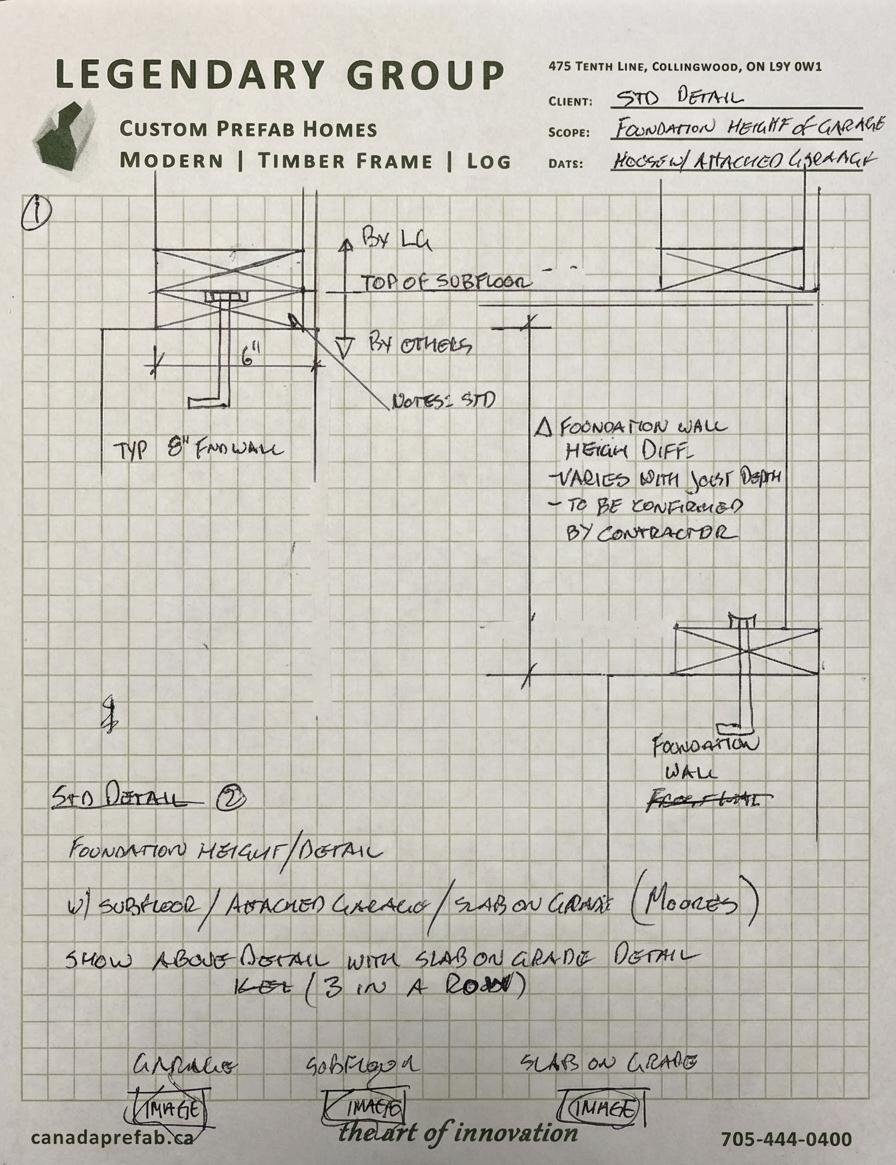 LEGENDARY GROUP
CUSTOM PREFAB HOMES
MODERN | TIMBER FRAME | LOG
475 TENTH LINE, COLLINGWOOD, ON L9Y 0W1
CLIENT: STD DETAIL
SCOPE: FOUNDATION HEIGHT of GARAGE
DATS: HOUSE W/ ATTACHED GARAAGE
①
BY LG
TOP OF SUBFLOOR
BY OTHERS
6"
NOTES: STD
TYP 8" ENDWALL
Δ FOUNDATION WALL
HEIGH DIFF.
- VARIES WITH JOIST DEPTH
- TO BE CONFIRMED
BY CONTRACTOR
FOUNDATION
WALL
STD DETAIL ②
FOUNDATION HEIGHT/DETAIL
W/ SUBFLOOR / ATTACHED GARAGE / SLAB ON GRADE (MOORES)
SHOW ABOVE DETAIL WITH SLAB ON GRADE DETAIL
(3 IN A ROW)
GARAGE SUBFLOOR SLAB ON GRADE
IMAGE IMAGE IMAGE
canadaprefab.ca the art of innovation 705-444-0400